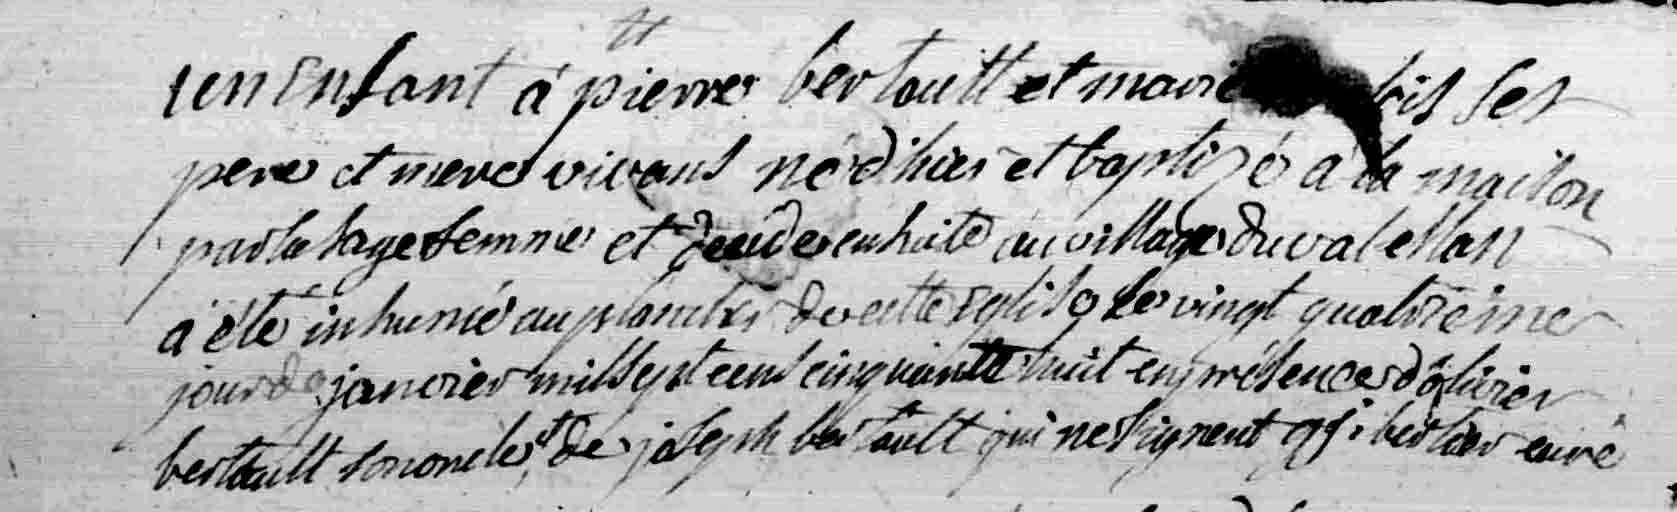 un enfant à pierre bertault et marie ses
pere et mere vivans né d'hier et baptizé à la maison
par la sage femme et decedé ensuite au village du val
a été inhumé au plancher de cette eglise le vingt quatrieme
jour de janvier mil sept cent cinquante huit en présence d'olivier
bertault son oncle et de joseph bertault qui ne signent curé